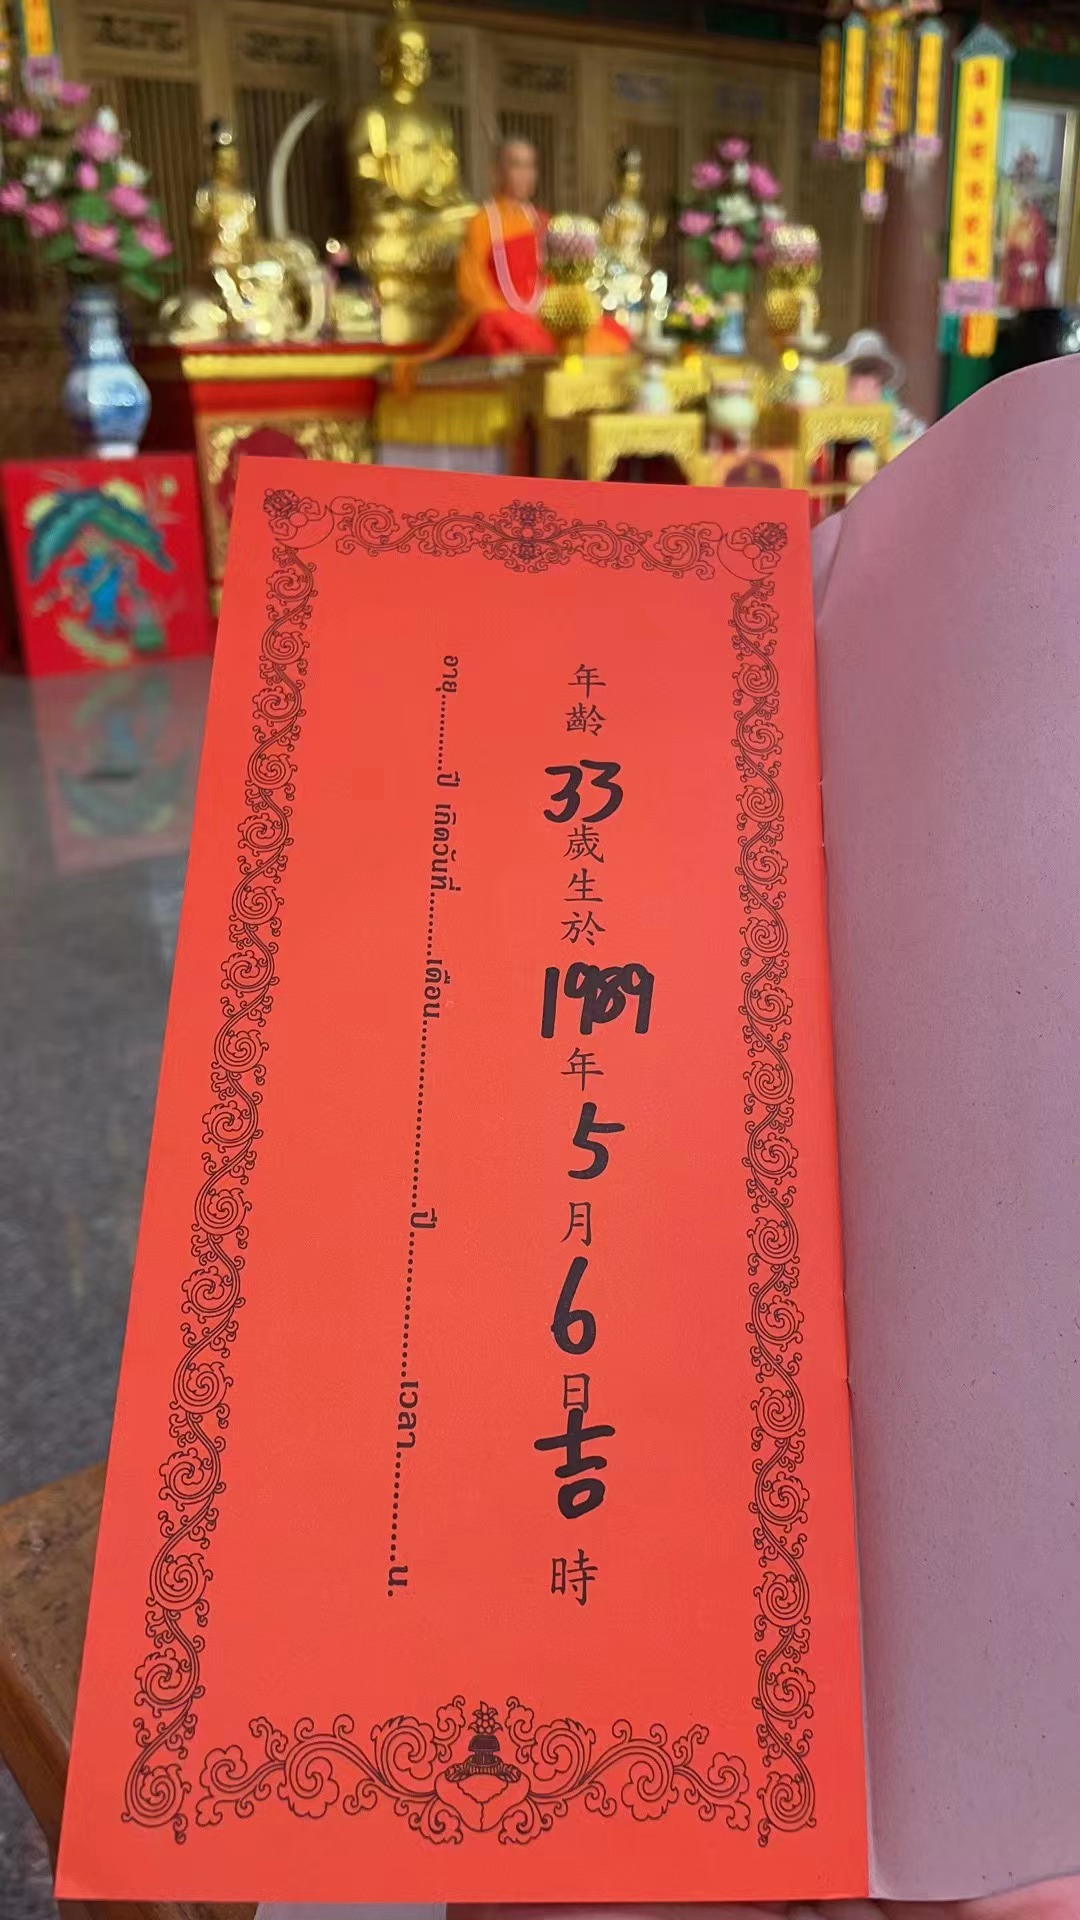 年齡33歲生於1989年5月6日吉時
อายุ..........ปี เกิดวันที่..........เดือน..............................ปี......................เวลา..............น.